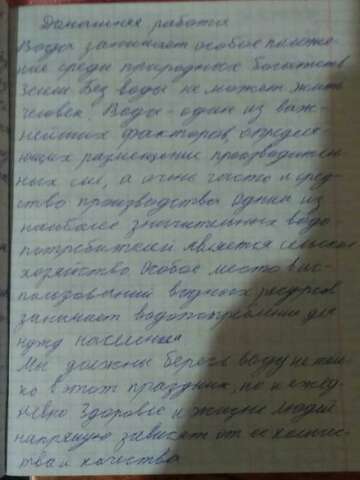 Домашняя работа
Вода занимает особое положе-
ние среди природных богатств
Земли Без воды не может жить
человек. Вода - один из важ-
нейших факторов, определя-
ющих размещение производитель-
ных сил, а очень часто и сред-
ство производства Одним из
наиболее значительных водо
потребителем является сельское
хозяйство Особое место в ис-
пользовании водных ресурсов
занимает водопотребление для
нужд населения
Мы должны беречь воду не толь-
ко в этот праздник, но и ежед-
невно Здоровье и жизнь людей
напрямую зависят от её количес-
тва и качества